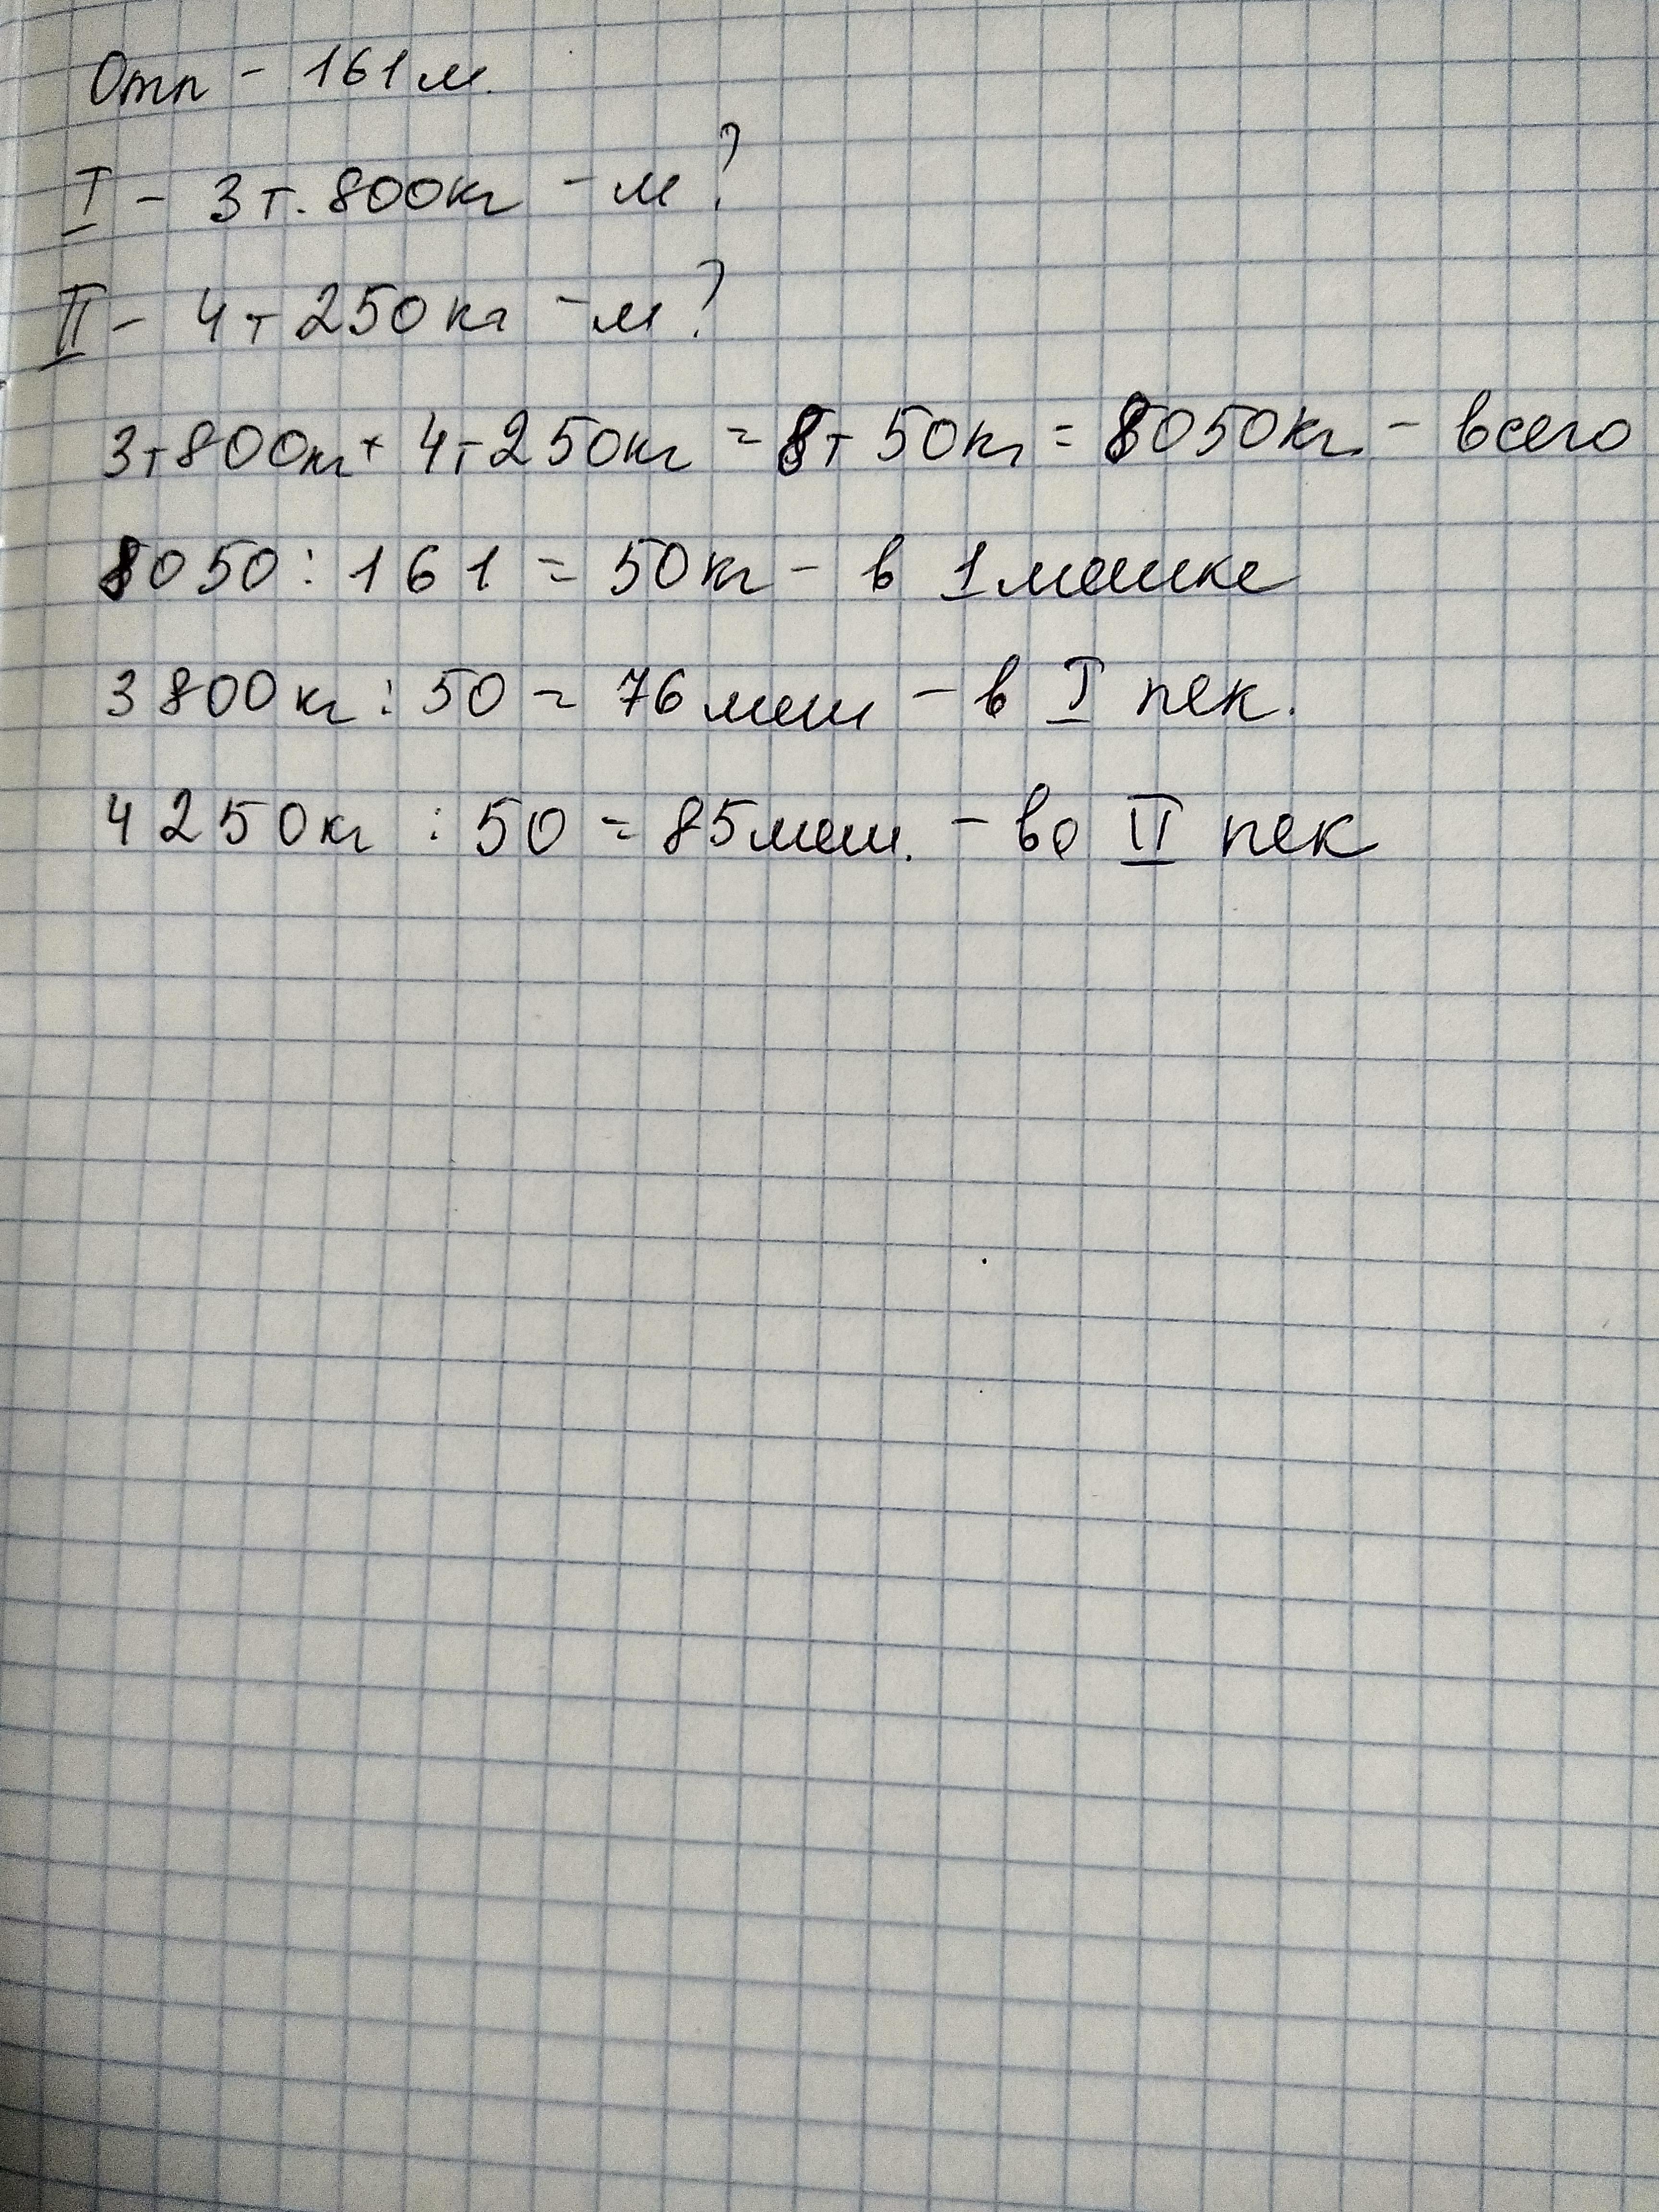 Отп - 161 м.
I - 3 т. 800 кг - м ?
II - 4 т 250 кг - м ?
3 т 800 кг + 4 т 250 кг = 8 т 50 кг = 8050 кг. - всего
8050 : 161 = 50 кг - в 1 мешке
3800 кг : 50 = 76 меш - в I пек.
4250 кг : 50 = 85 меш. - во II пек